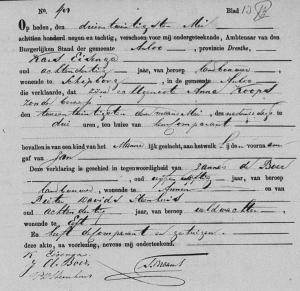 No.
Blad 13
Op heden, den drieëntwintigsten Mei
achttien honderd negen en tachtig, verscheen voor mij ondergeteekende, Ambtenaar van den
Burgerlijken Stand der gemeente Anloo, provincie Drenthe,
Kars Eisenga
oud achtendertig jaar, van beroep landbouwer
wonende te Schipborg in de gemeente Anloo
die verklaarde, dat zijne echtgenoote Anna Koops
zonder beroep
den tweeentwintigsten dezer maand Mei, des namiddags te
drie uren, ten huize van
bevallen is van een kind van het geslacht, aan hetwelk hij den voornaam
gaf van Jan
Deze verklaring is geschied in tegenwoordigheid van Jannes de Boer
oud jaar, van beroep
landbouwer, wonende te Annen en van
Davids
oud achtendertig jaar, van beroep veldwachter
wonende te Eext
En heeft de comparant en getuigen
deze akte, na voorlezing, nevens mij onderteekend.
K Eisenga
J. d. Boer